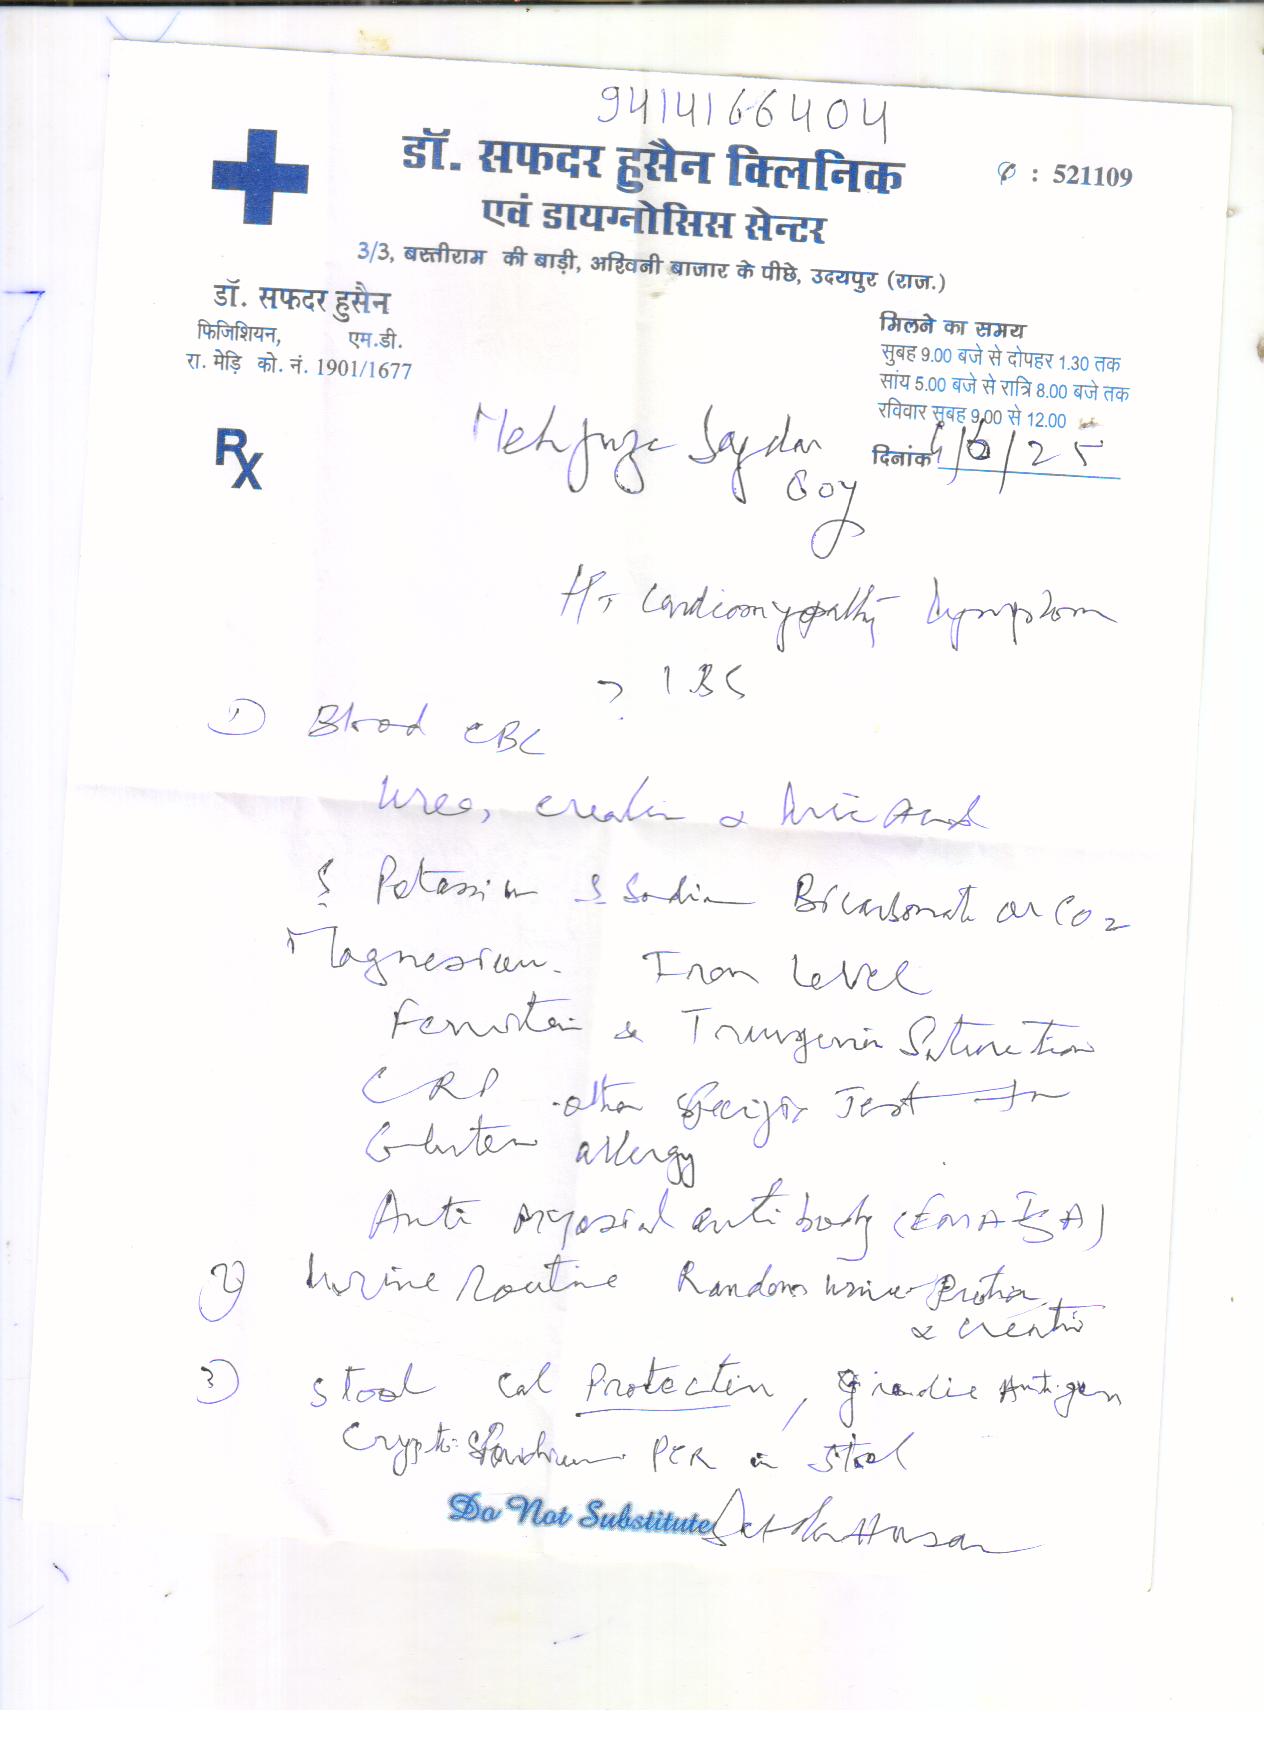 9414166404
डॉ. सफदर हुसैन क्लिनिक
: 521109
एवं डायग्नोसिस सेन्टर
3/3, बस्तीराम की बाड़ी, अश्विनी बाजार के पीछे, उदयपुर (राज.)
डॉ. सफदर हुसैन
फिजिशियन, एम.डी.
रा. मेड़ि को. नं. 1901/1677
मिलने का समय
सुबह 9.00 बजे से दोपहर 1.30 तक
सांय 5.00 बजे से रात्रि 8.00 बजे तक
रविवार सुबह 9.00 से 12.00
दिनांक 4/6/25
Rx
60y
Cardiomyopathy Symptom
? IBS
1) Blood CBC
Urea, Creatin & Uric Acid
S Potassium S Sodium Bicarbonate or CO2
Magnesium. Iron Level
Ferritin & Transferrin Saturation
CRP other specific Test for
Gluten allergy
Anti antibody (EMA IgA)
2) Urine Routine Random Urine Protein
& Creatin
3) Stool Cal Protectin, Giardia Antigen
Cryptosporidium PCR in Stool
Do Not Substitute